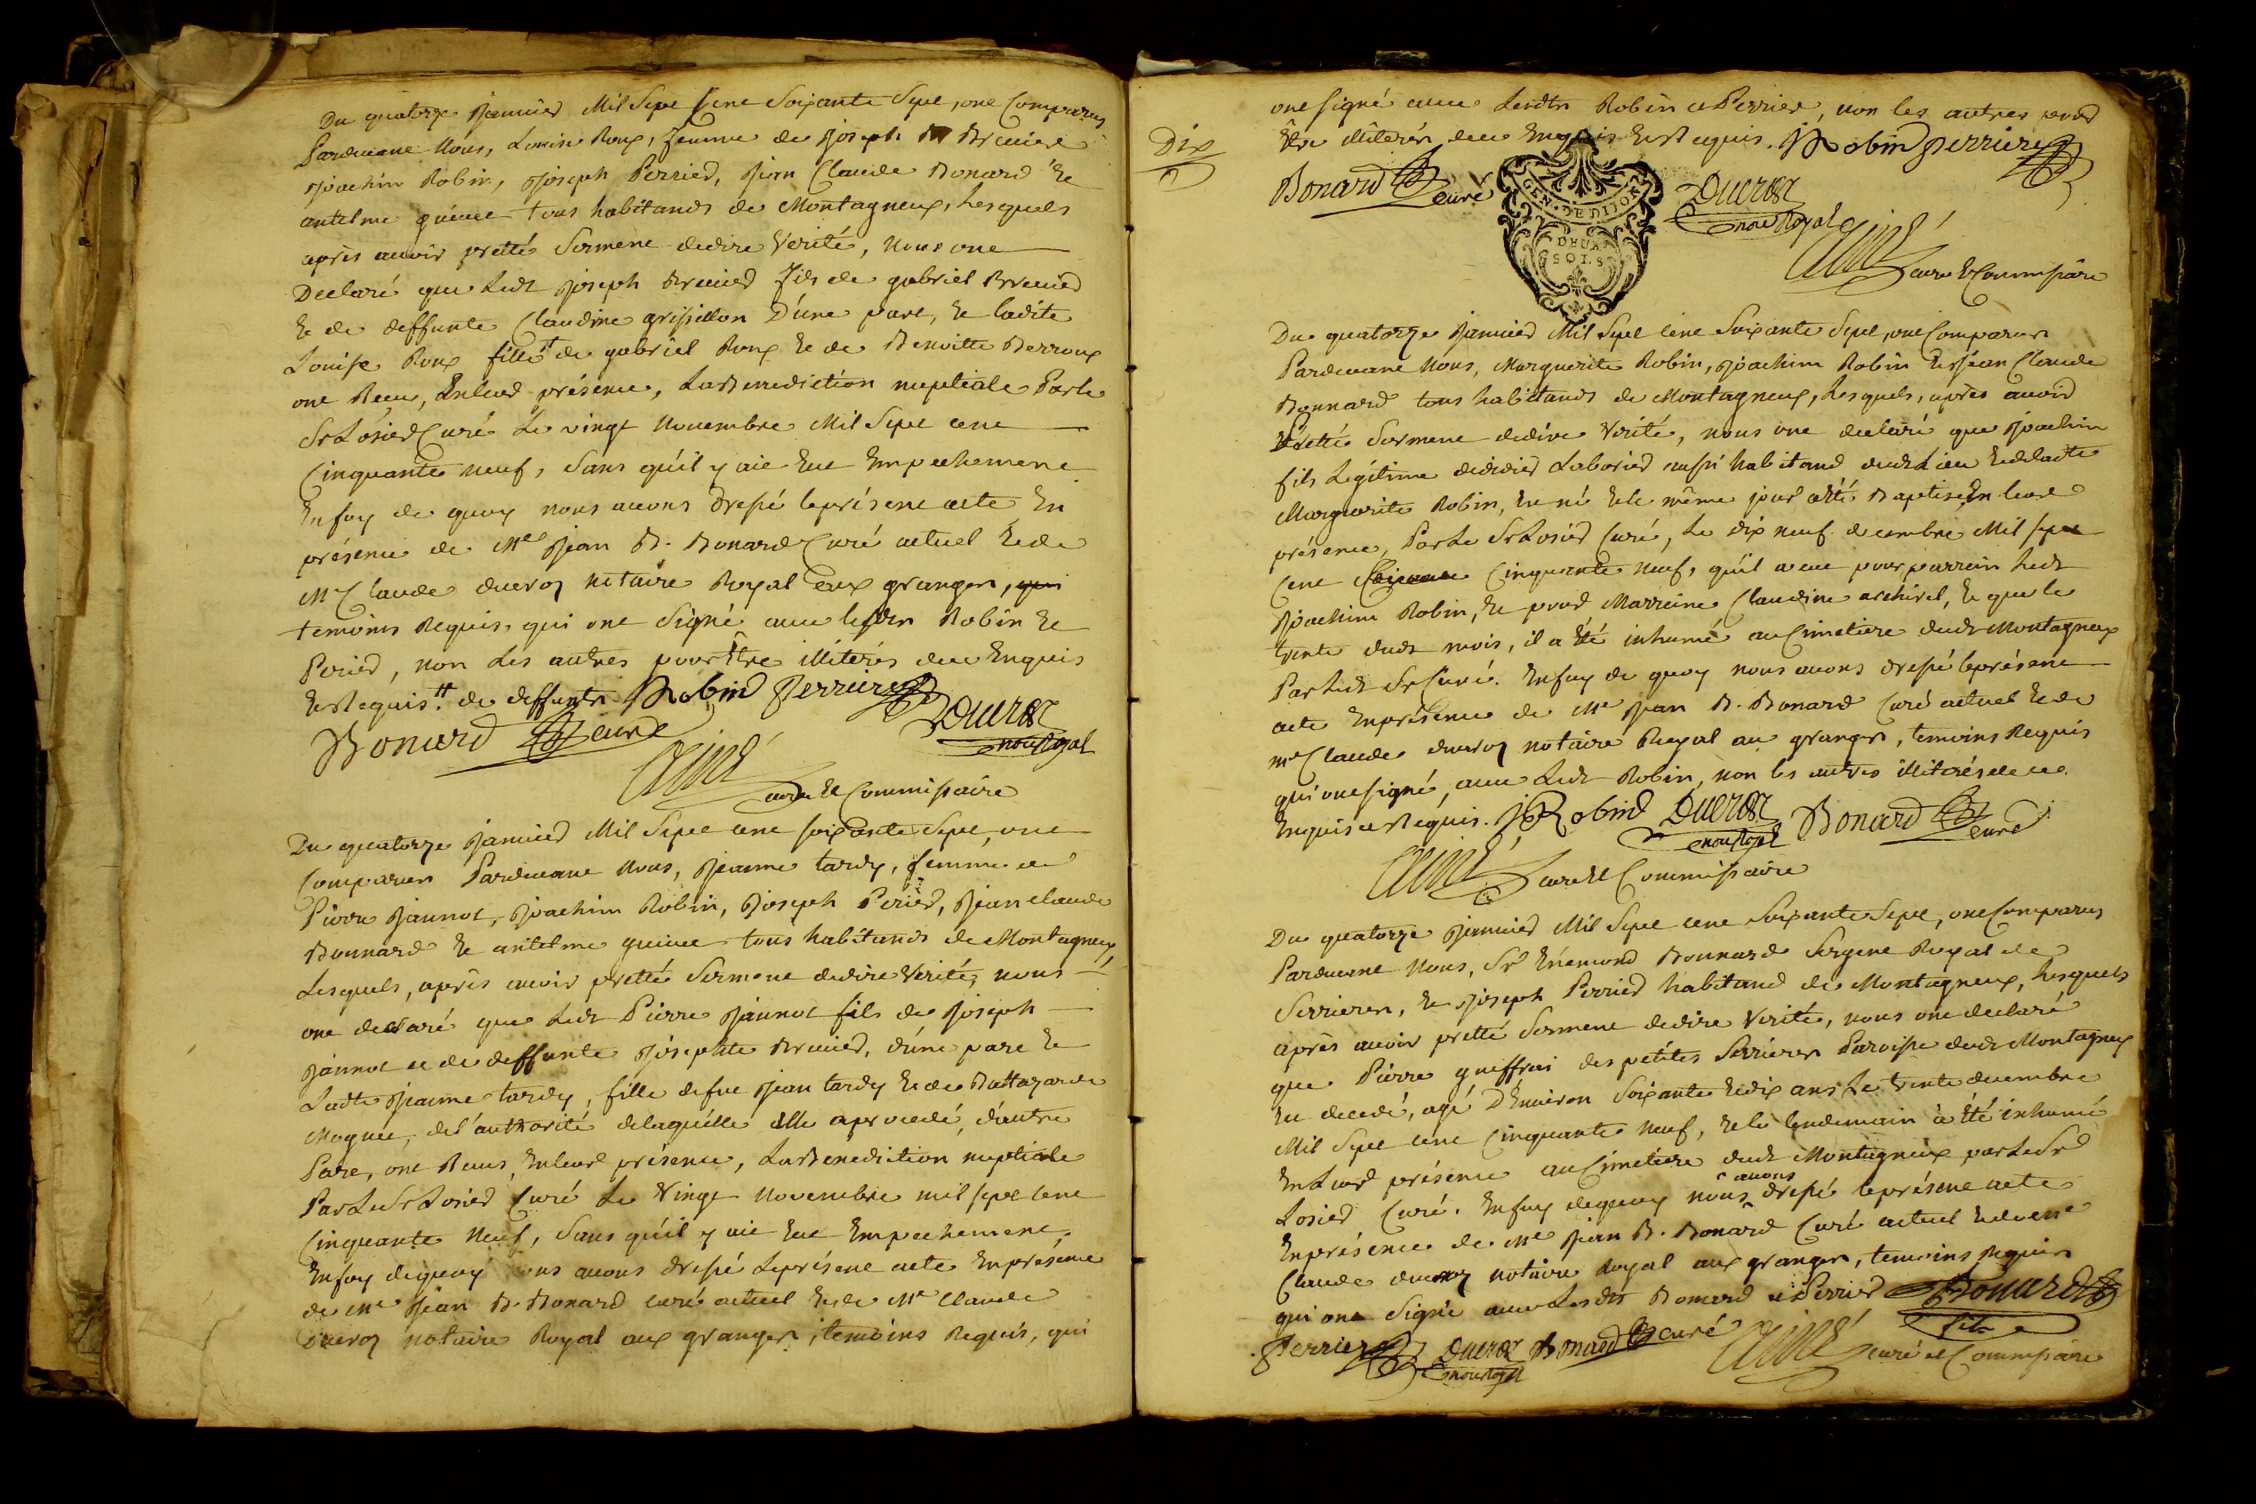 Du quatorze Janvier Mil Sept Cent Soixante Sept, ont Comparus
Pardevant Nous, Louise Roux, femme de Joseph Bruvier
Joachim Robin, Joseph Perrier, Jean Claude Bonard Et
antelme tous habitands de Montagneux, Lesquels
après avoir pretté Serment dedire Verité, nous ont
Declaré que Ledt Joseph Bruvier fils de gabriel Bruvier
Et de deffunte Claudine D'une part, Et ladite
Louise Roux fille de gabriel Roux Et de Benoitte Berroux
ont Receu, Enleur présence, La Benediction nuptiale Parle
Sr Losier Curé Le vingt Novembre Mil Sept cent
Cinquante neuf, Sans qu'il y aie Eut Empechement
Enfoy de quoy nous avons dressé leprésent acte En
présence de Me Jean B. Bonard Curé actuel Et de
Me Claude ducroz notaire Royal aux granges,
temoins Requis, qui ont Signé avec lesdts Robin Et
Perier, non Les autres pour Etre illiterés dece Enquis
Et Requis. de deffunte Robin Perrier
Bonard curé Ducroz
nore Royal
Aimé curé Et Commissaire
Du quatorze Janvier Mil Sept cent soixante Sept, ont
Comparus Pardevant Nous, Jeanne tardy, femme de
Pierre Jannot, Joachim Robin, Joseph Perier, Jean claude
Bonnard Et antelme tous habitands de Montagneux,
Lesquels, après avoir pretté Serment dedire Verité, nous
ont declaré que Ledt Pierre Jannot fils de Joseph
Jannot et de deffunte Josephte Bruvier, d'une part Et
Ladte Jeanne tardy, fille de feu Jean tardy Et de Battazarde
del'authorité delaquelle Elle aprocedé, d'autre
Part, ont Receus, Enleur présence, La Benediction nuptiale
Par Le Sr Losier Curé Le Vingt Novembre mil sept cent
Cinquante Neuf, Sans qu'il y aie Eut Empechement.
Enfoy dequoy nous avons dressé Leprésent acte Enprésence
de Me Jean B. Bonard curé actuel Et de Me Claude
Ducroz notaire Royal aux granges, temoins Requis, qui
ont signé avec Lesdts Robin et Perrier, non les autres pour
Etre illiterés, dece Enquis Et Requis. J Robin Perrier
Dix
Bonard curé
GEN. DE DIJON
DEUX
SOLS
Ducroz
nore Royal
Aimé
curé Et Commissaire
Du quatorze Janvier Mil Sept Cent Soixante Sept, ont Comparus
Pardevant Nous, Marguerite Robin, Joachim Robin Et Jean Claude
Bonnard tous habitands de Montagneux, Lesquels, après avoir
Pretté Serment dedire Verité, nous ont declaré que Joachim
fils Legitime dedidier Laborier aussi habitand dudt Lieu Et deladte
Marguerite Robin, Est né Et le même jour aété Baptisé, En leur
présence, Par Le Sr Losier Curé, Le dix neuf decembre Mil sept
Cent Cinquante neuf, qu'il a eut pour parrein Ledt
Joachim Robin, Et pour Marreine Claudine Et que le
trente dudt mois, il a Eté inhumé au Cimetiere dudt Montagneux
Par Ledt Sr Curé. Enfoy de quoy nous avons dressé leprésent
acte Enprésence de Me Jean B. Bonard Curé actuel Et de
Me Claude ducroz notaire Royal au granges, temoins Requis
qui ont signé, avec Ledt Robin, non les autres illiterés de ce
Enquis et Requis. J Robin Ducroz Bonard curé
nore Royal
Aimé curé Et Commissaire
Du quatorze Janvier Mil Sept cent Soixante Sept, ont Comparus
Pardevant Nous, Sr Enemond Bonnard Sergent Royal de
Serrieres, Et Joseph Perrier habitand de Montagneux, Lesquels
après avoir pretté Serment dedire Verité, nous ont declaré
que Pierre des petites Serrieres Paroisse dudt Montagneux
Est decedé, agé D'Environ Soixante Et dix ans Le trente decembre
Mil Sept cent Cinquante neuf, Et le lendemain à Eté inhumé
En Leur présence au Cimetiere dudt Montagneux par Le Sr
Losier Curé. Enfoy dequoy nous avons dressé leprésent acte
Enprésence de Me Jean B. Bonard Curé actuel Et de Me
Claude ducroz notaire Royal aux granges, temoins Requis
qui ont Signé avec Lesdts Bonnard et Perrier Bonard
fils
Perrier Ducroz Bonard curé Aimé curé et Commissaire
nore Royal